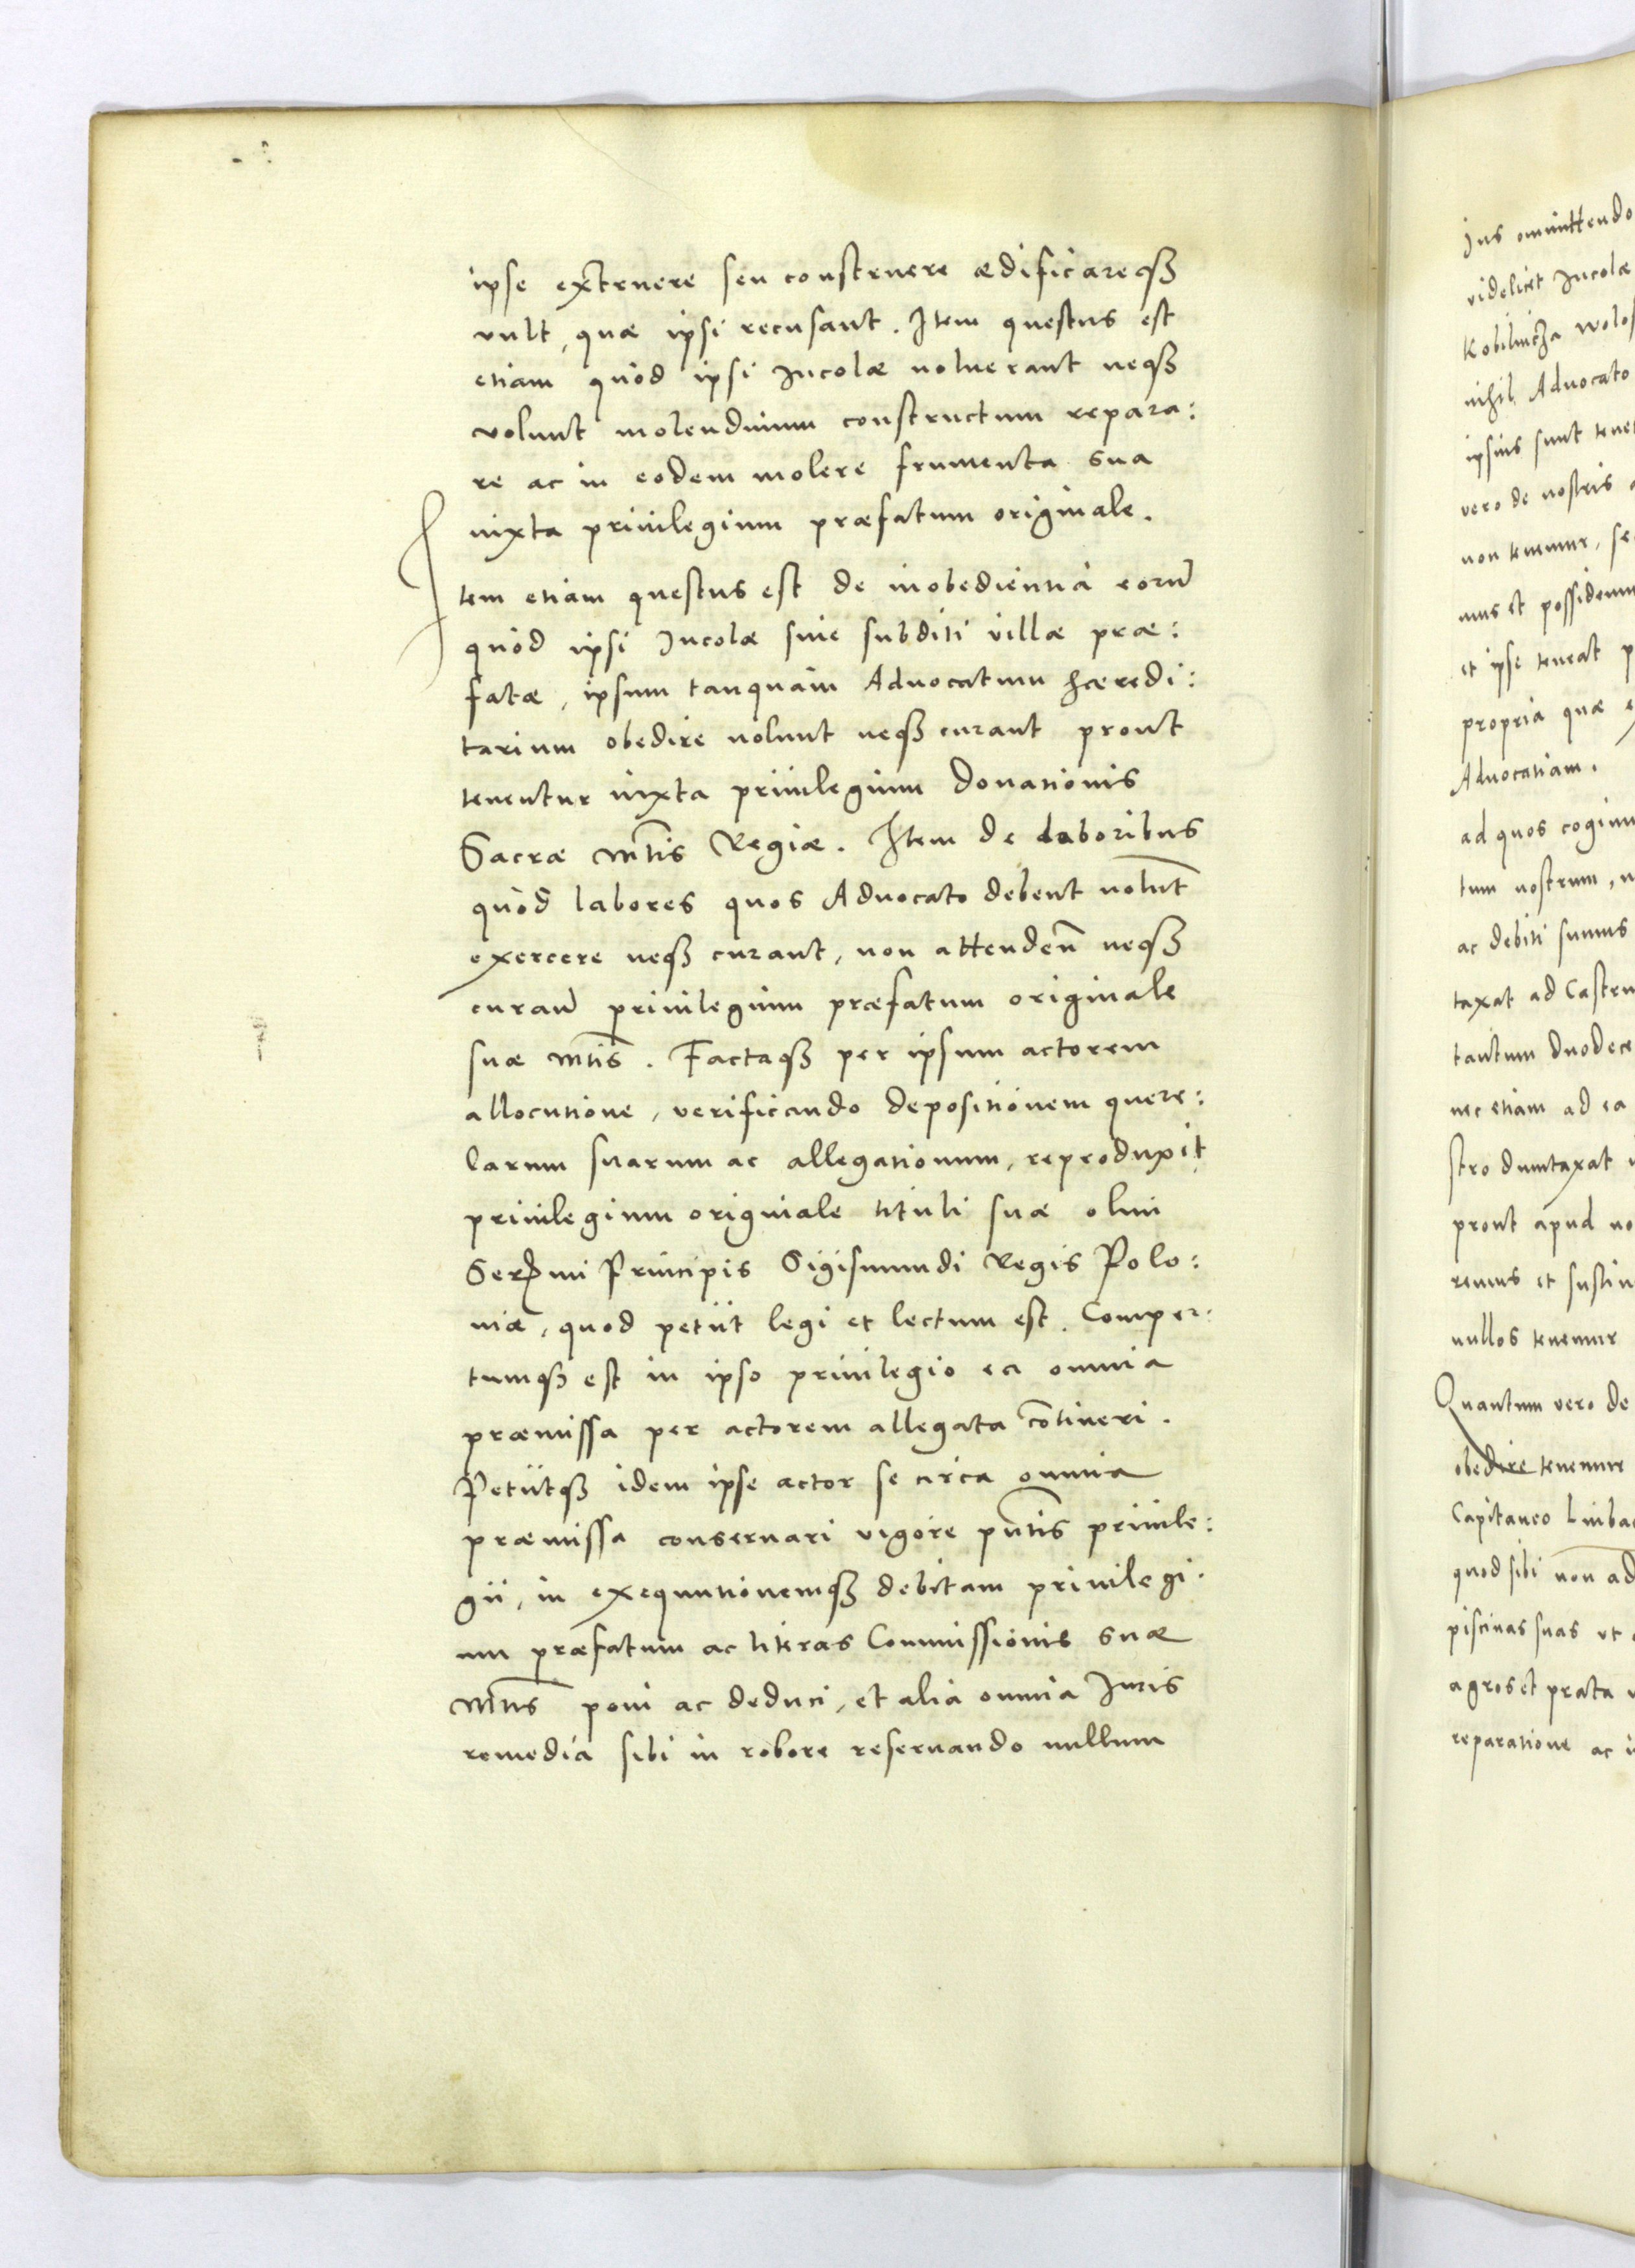 ipse extruere seu construere ædificareqꝫ
vult, quæ ipsi recusant. Item questus est
etiam quòd ipsi Incolæ noluerant neqꝫ
volunt molendinum constructum repara:
re ac in eodem molere frumenta sua
iuxta priuilegium præfatum originale.
Item etiam questus est de inobedientia eorū
quòd ipsi Incolæ siue subditi villæ præ:
fatæ, ipsum tanquàm Aduocatum hæredi:
tarium obedire nolunt neqꝫ curant prout
tenentur iuxta priuilegium donationis
Sacræ Mtis Regiæ. Item de laboribus
quòd labores quos Aduocato debent nolūt
exercere neqꝫ curant, non attendeñ neqꝫ
curañ priuilegium præfatum originale
suæ Mtis. Factaqꝫ per ipsum actorem
allocutione, verificando depositionem quere:
larum suarum ac allegationum, reproduxit
priuilegium originale tituli suæ olim
Serᵐⁱ Principis Sigismundi Regis Polo:
niæ, quod petiit legi et lectum est. Comper:
tumqꝫ est in ipso priuilegio ea omnia
præmissa per actorem allegata cōtineri.
Petiitqꝫ idem ipse actor se circa omnia
præmissa conseruari vigore pñtis priuile:
gii, in exequutionemqꝫ debitam priuilegi:
um præfatum ac literas Commissionis suæ
Mtis poni ac deduci, et alia omnia Iuris
remedia sibi in robore reseruando nullum
Ius ommittendo
videlicet Incolæ
nihil Aduocato
ipsius sunt
vero de nostris
non tenemur,
mus et
et ipse teneat
propria quæ
Aduocatiam.
ad quos
tum nostrum,
ac debiti sumus
taxat ad
tantum
nec etiam ad ea
stro dumtaxat
prout apud
remus et
nullos tenemur
Quantum vero de
obedire tenemur
Capitaneo
quod sibi non
piscinas suas vt
agros et prata
reparatione ac